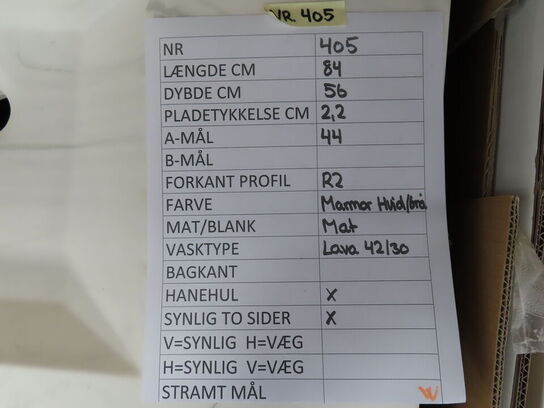 VR. 405
NR 405
LÆNGDE CM 84
DYBDE CM 56
PLADETYKKELSE CM 2,2
A-MÅL 44
B-MÅL
FORKANT PROFIL R2
FARVE Marmor Hvid/Grå
MAT/BLANK Mat
VASKTYPE Lava 42/30
BAGKANT
HANEHUL X
SYNLIG TO SIDER X
V=SYNLIG H=VÆG
H=SYNLIG V=VÆG
STRAMT MÅL